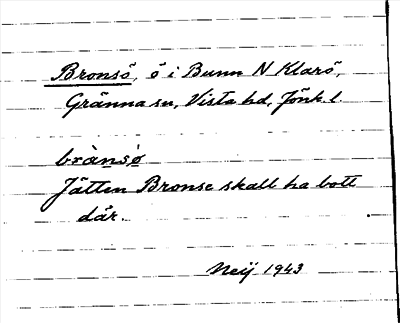 Bronsö, ö i Bunn N Klarö,
Gränna sn, Vista hd, Jönk. l.
brànsø
Jätten Bronse skall ha bott
där.
Neij 1943